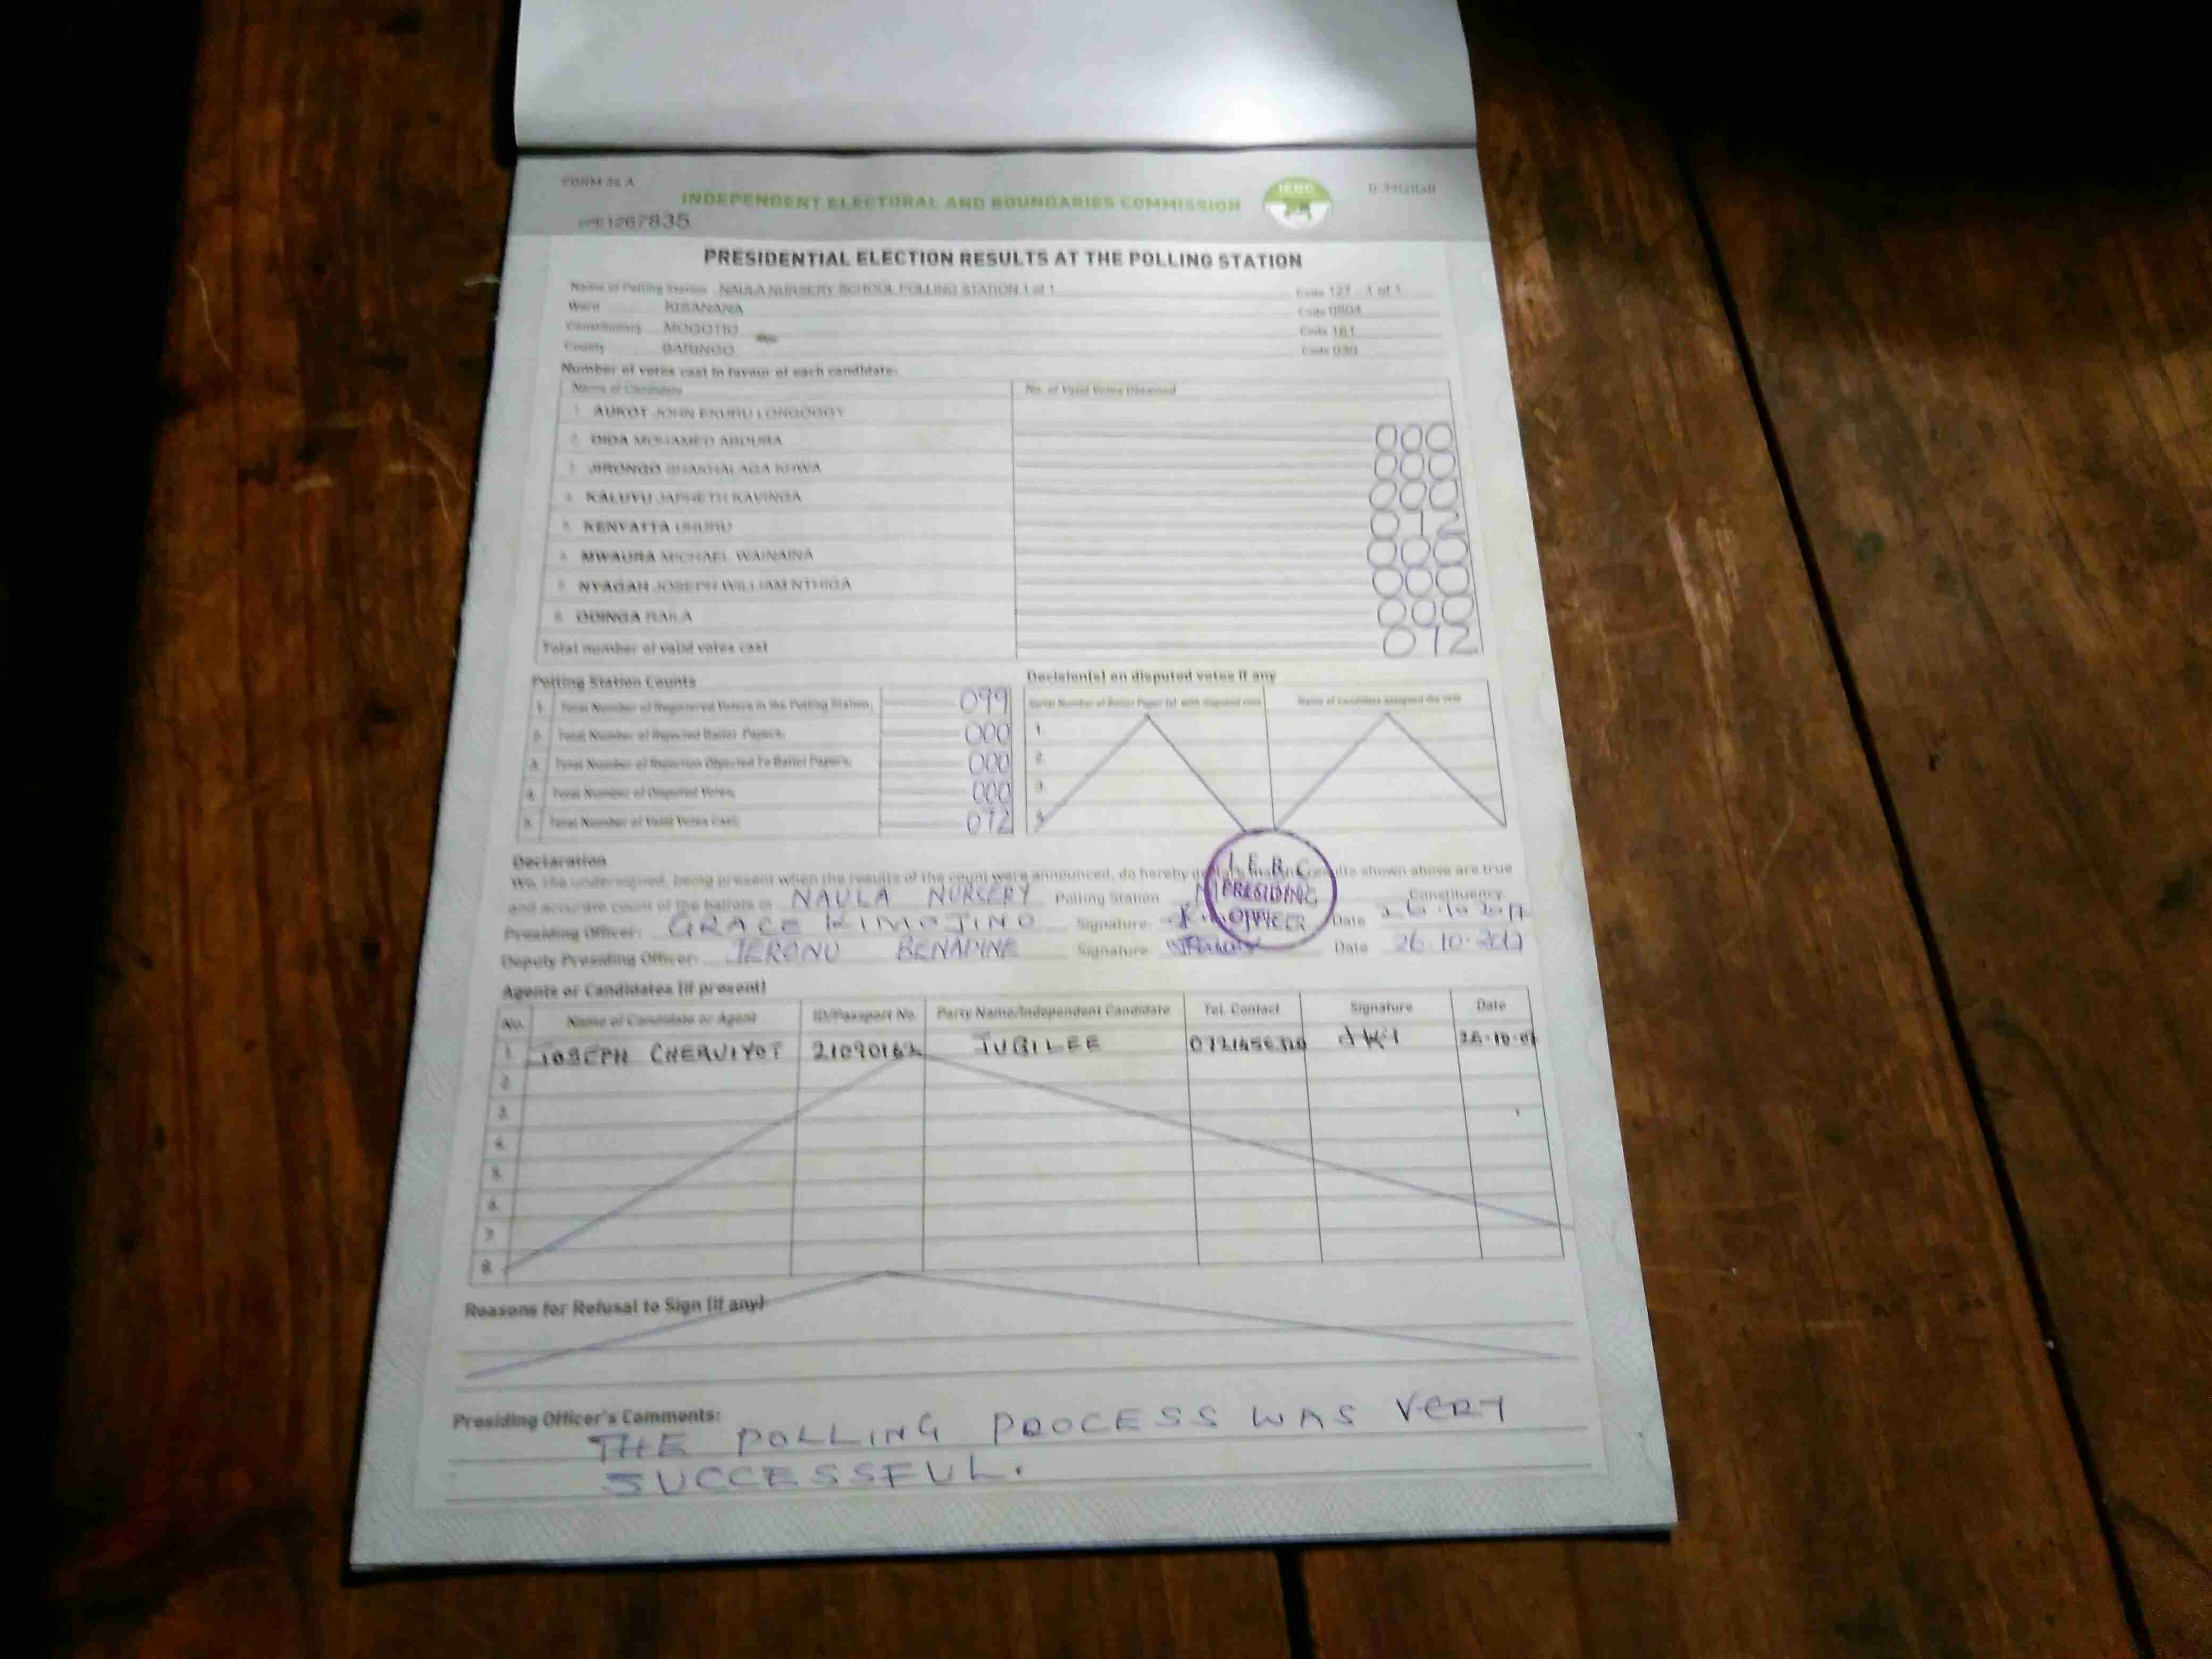 FORM 34 A
INDEPENDENT ELECTORAL AND BOUNDARIES COMMISSION
IEBC
1267835
PRESIDENTIAL ELECTION RESULTS AT THE POLLING STATION
Name of Polling Station NAULA NURSERY SCHOOL POLLING STATION 1 of 1 Code 127 - 1 of 1
Ward KISANANA Code 0804
Constituency MOGOTIO Code 161
County BARINGO Code 030
Number of votes cast in favour of each candidate:
Name of Candidate No. of Valid Votes Obtained
1. AUKOT JOHN EKURU LONGOGGY
2. DIDA MOHAMED ABDUBA 000
3. JIRONGO SHAKHALAGA KHWA 000
4. KALUYU JAPHETH KAVINGA 000
5. KENYATTA UHURU 012
6. MWAURA MICHAEL WAINAINA 000
7. NYAGAH JOSEPH WILLIAM NTHIGA 000
8. ODINGA RAILA 000
Total number of valid votes cast 072
Polling Station Counts Decision(s) on disputed votes if any
1. Total Number of Registered Voters in the Polling Station; 099 Serial Number of Ballot Paper (s) with disputed vote Name of candidate assigned the vote
2. Total Number of Rejected Ballot Papers; 000 1.
3. Total Number of Rejection Objected To Ballot Papers; 000 2.
4. Total Number of Disputed Votes; 000 3.
5. Total Number of Valid Votes Cast; 072 4.
Declaration
We, the undersigned, being present when the results of the count were announced, do hereby results shown above are true
and accurate count of the ballots in NAULA NURSERY Polling Station Constituency
I.E.B.C PRESIDING OFFICER
Presiding Officer: GRACE Signature: Date 26.10.2017
Deputy Presiding Officer: JERONO Signature: Date 26.10.2017
Agents or Candidates (if present)
No. Name of Candidate or Agent ID/Passport No. Party Name/Independent Candidate Tel. Contact Signature Date
1. JOSEPH CHERUIYOT 21090162 JUBILEE
2.
3.
4.
5.
6.
7.
8.
Reasons for Refusal to Sign (if any)
Presiding Officer's Comments:
THE POLLING PROCESS WAS VERY
SUCCESSFUL.